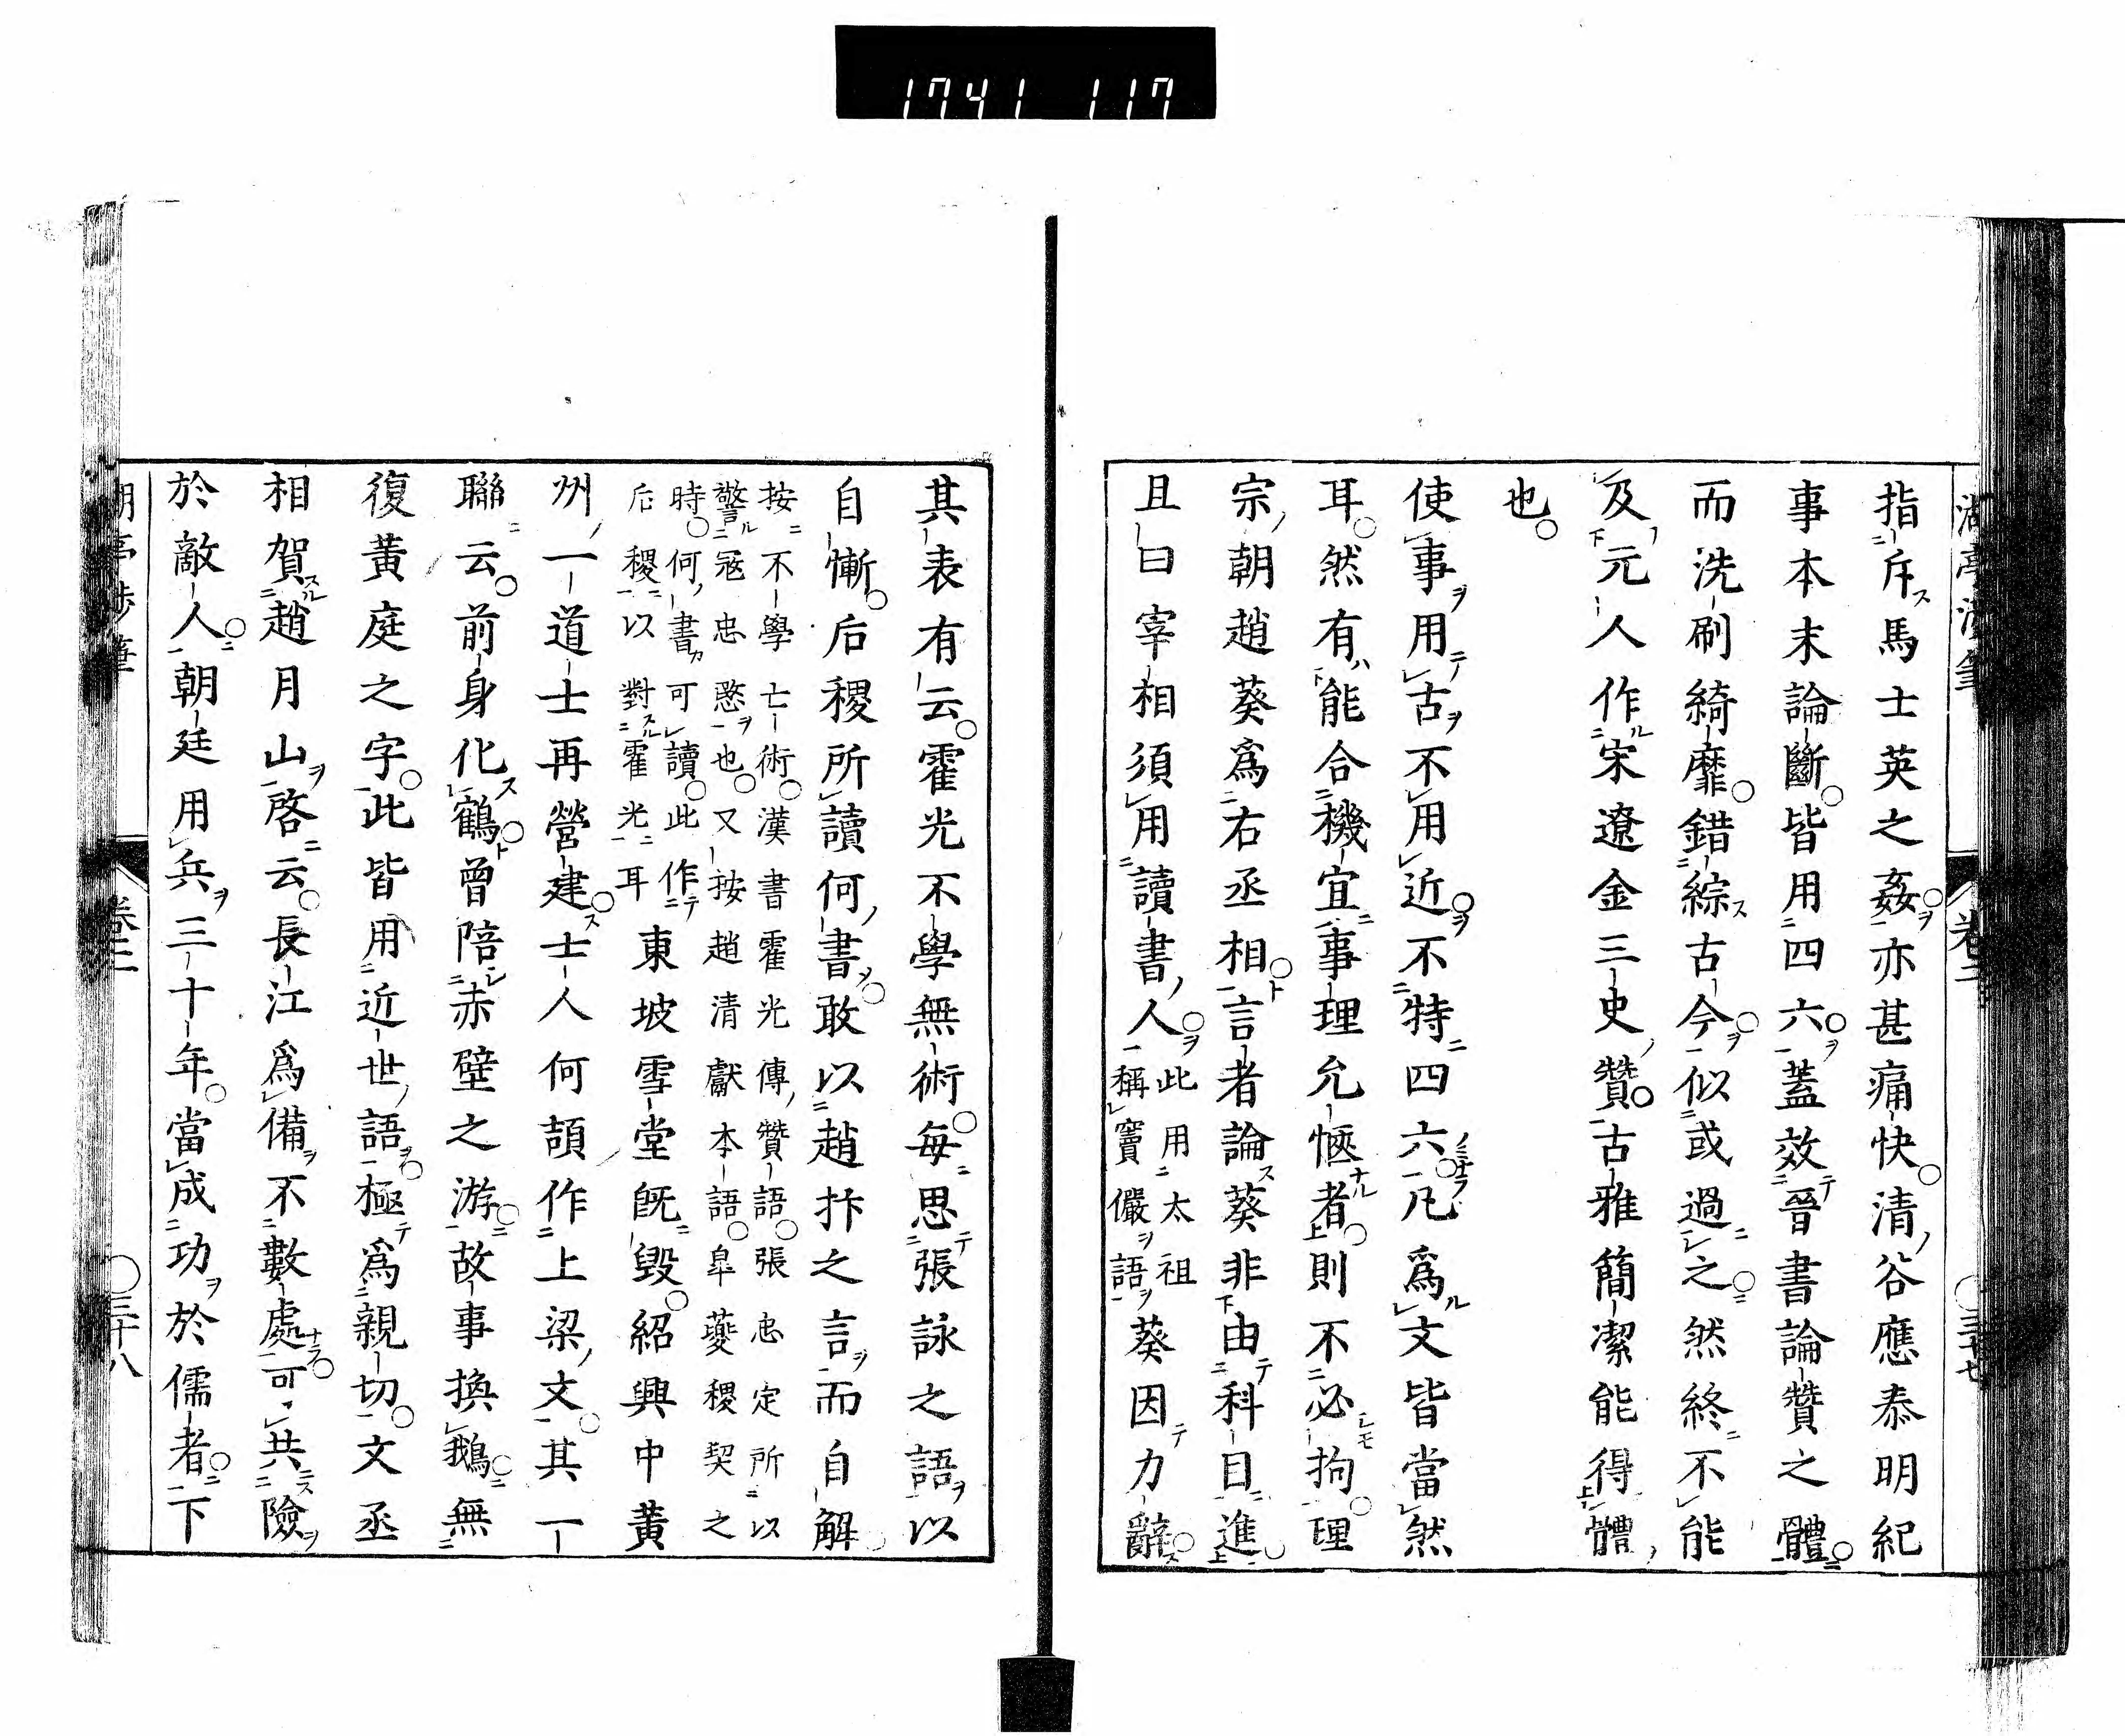 1741 117
指斥馬士英之姦亦甚痛快清谷應泰明紀
事本末論斷皆用四六蓋效晉書論贊之體
而洗刷綺靡錯綜古今似或過之然終不能
及元人作宋遼金三史贊古雅簡潔能得體
也
使事用古不用近不特四六凡爲文皆當然
耳然有能合機宜事理允愜者則不必拘理
宗朝趙葵爲右丞相言者論葵非由科目進
且曰宰相須用讀書人此用太祖
稱竇儼語葵因力辭
其表有云霍光不學無術每思張詠之語以
自慚后稷所讀何書敢以趙抃之言而自解
按不學亡術漢書霍光傳贊語張忠定所以
警寇忠愍也又按趙清獻本語皐夔稷契之
時何書可讀此作
后稷以對霍光耳東坡雪堂旣毀紹興中黃
州一道士再營建士人何頡作上梁文其一
聯云前身化鶴曾陪赤壁之游故事換鵝無
復黃庭之字此皆用近世語極爲親切文丞
相賀趙月山啓云長江爲備不數處可共險
於敵人朝廷用兵三十年當成功於儒者下
卷二
三十八